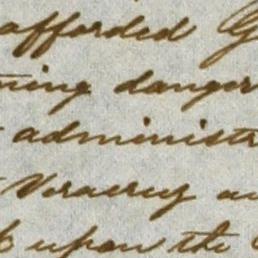 afforded G
ning danger
administr
Veracruz au
k upon the